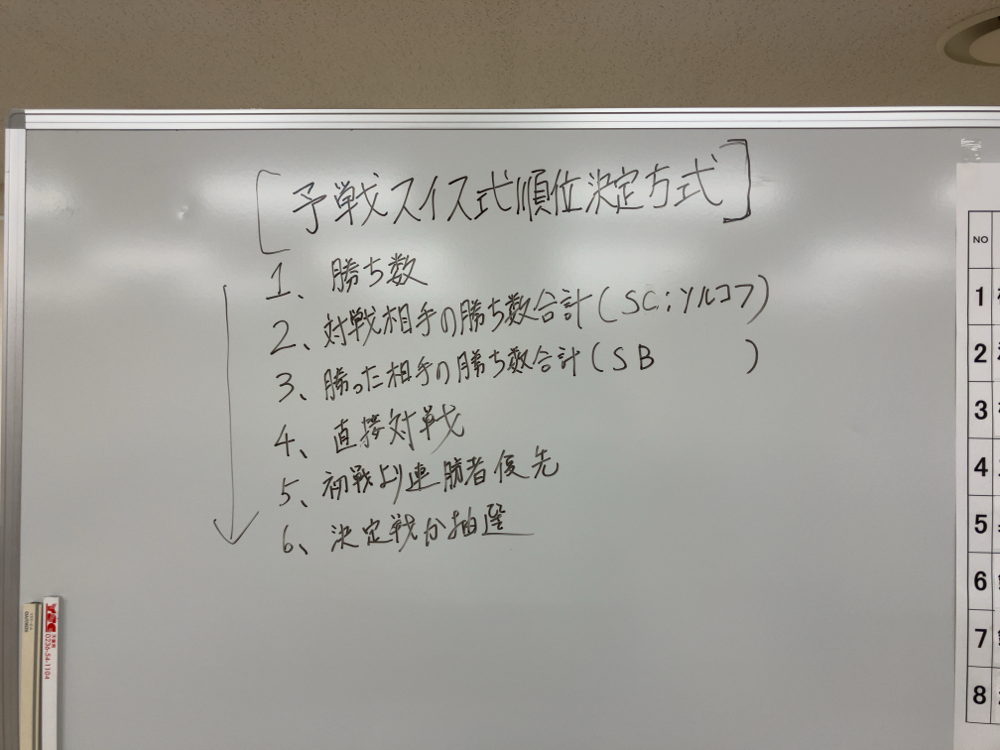 [予戦スイス式順位決定方式]
1、勝ち数
2、対戦相手の勝ち数合計(SC;ソルコフ)
3、勝った相手の勝ち数合計(SB　　　)
4、直接対戦
5、初戦より連勝者優先
6、決定戦か抽選
NO
1
2
3
4
5
6
7
8
0236-54-1104